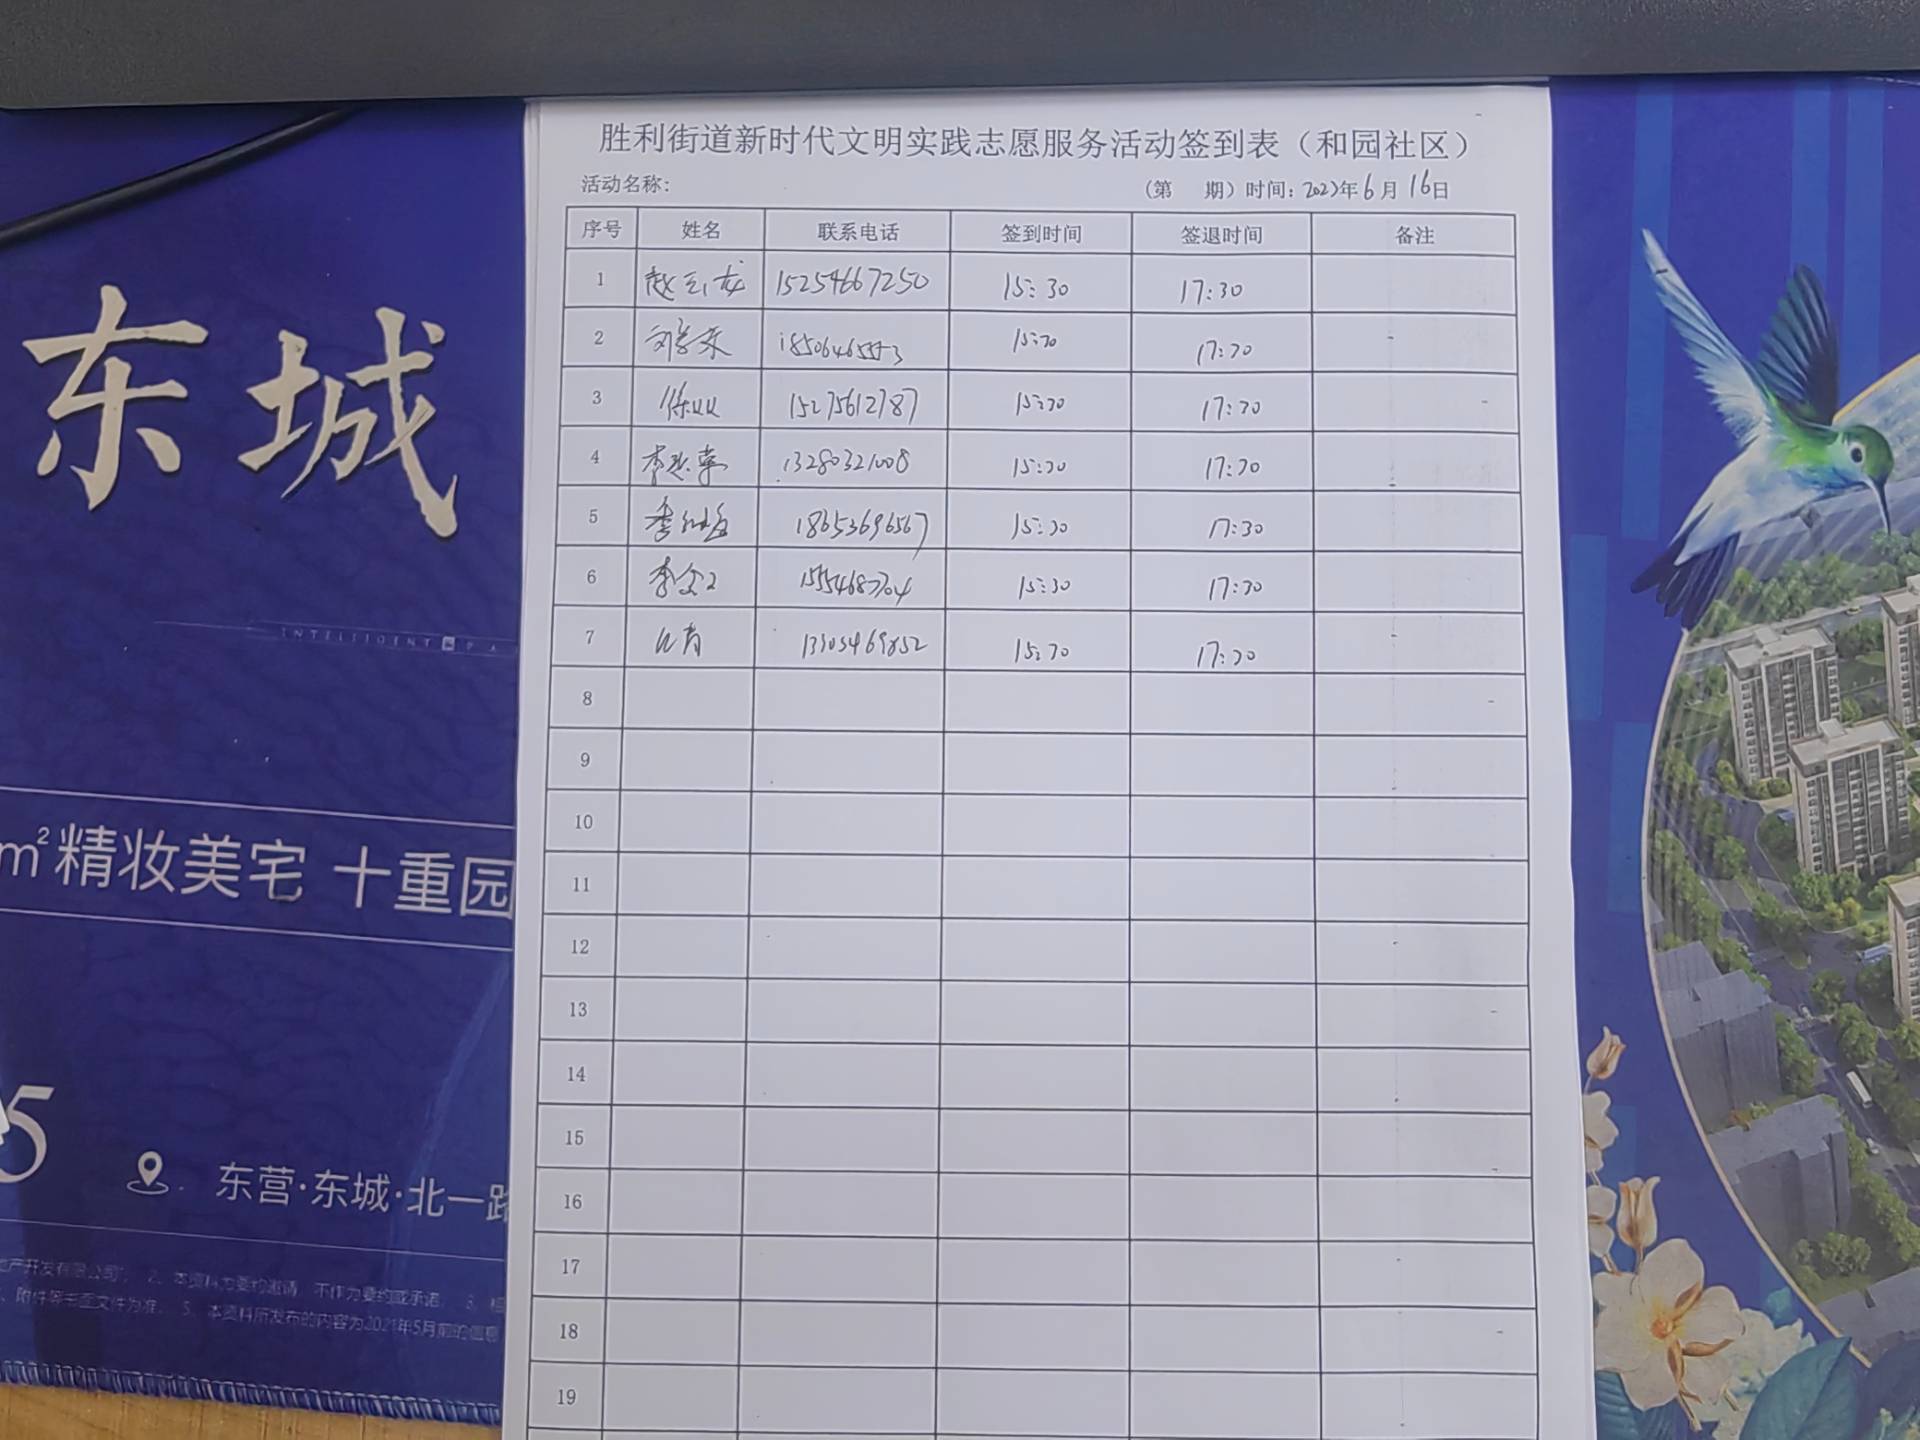 胜利街道新时代文明实践志愿服务活动签到表（和园社区）
活动名称： （第 期）时间：2023年6月16日
序号 姓名 联系电话 签到时间 签退时间 备注
1 赵云龙 15254667250 15:30 17:30
2 15:30 17:30
3 15275612787 15:30 17:30
4 13280321008 15:30 17:30
5 18653696567 15:30 17:30
6 15:30 17:30
7 15:30 17:30
8
9
10
11
12
13
14
15
16
17
18
19
东城
INTELLIGENT PA
m²精妆美宅 十重园
5
东营·东城·北一路
地产开发有限公司； 2、本资料为要约邀请 不作为要约或承诺； 3、
附件等书面文件为准； 5、本资料所发布的内容为2021年5月前的信息